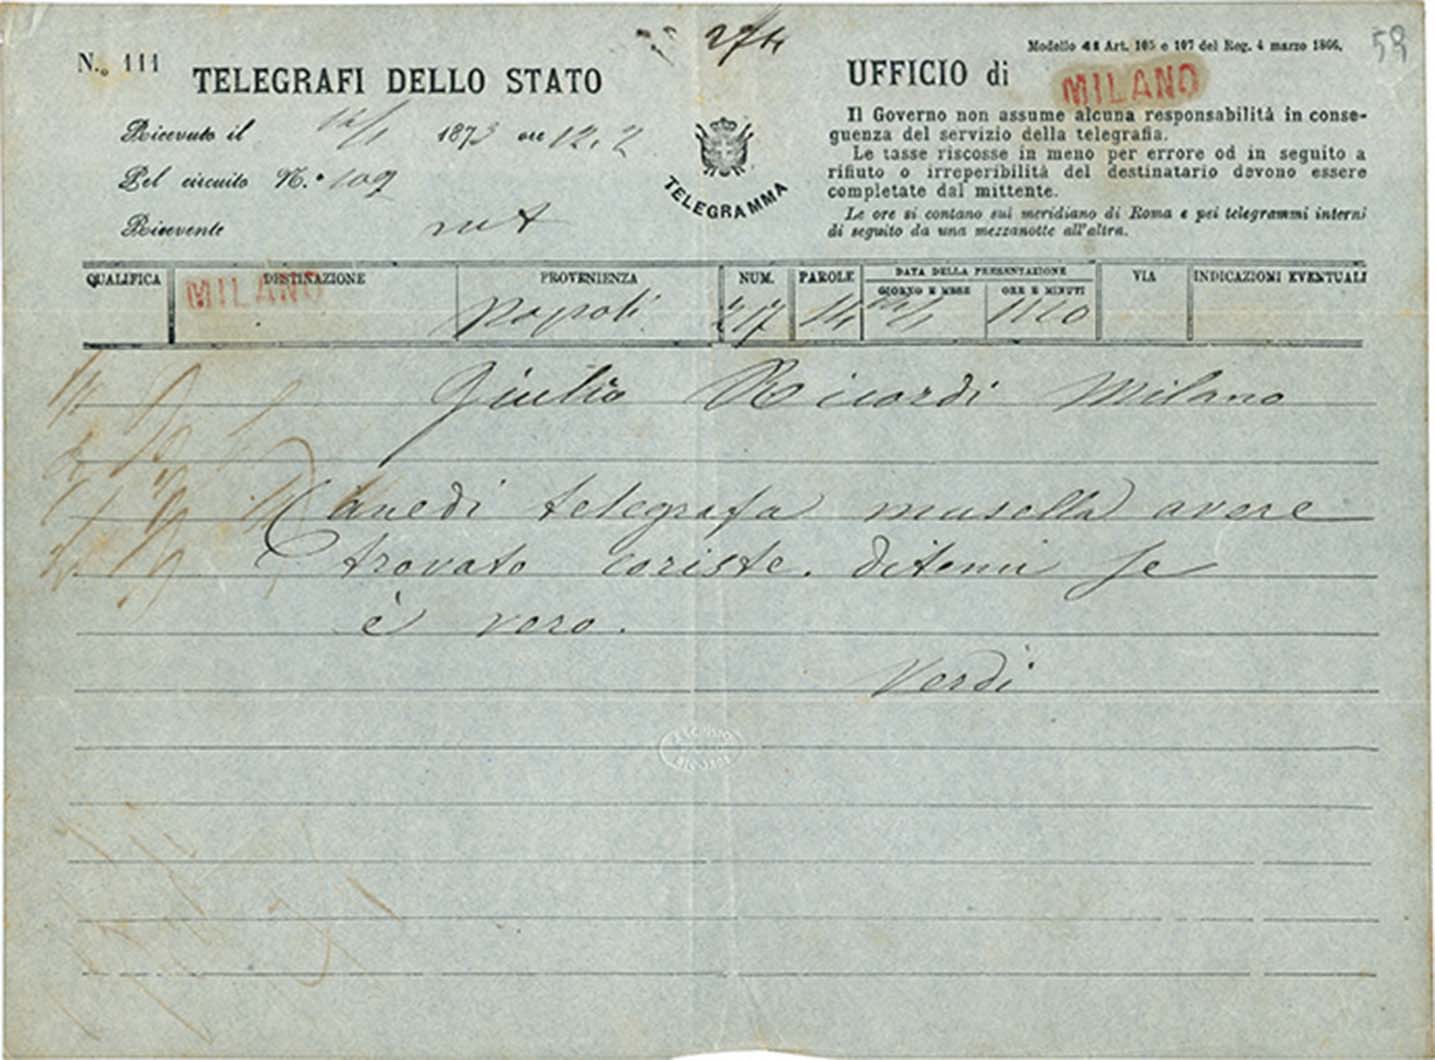 274
58
N.o 111
TELEGRAFI DELLO STATO
Ricevuto il 12/1 1873 ore 12.2
Pel circuito N.o 109
Ricevente
TELEGRAMMA
Modello 41 Art. 105 e 107 del Reg. 4 marzo 1866.
UFFICIO di MILANO
Il Governo non assume alcuna responsabilità in conse-
guenza del servizio della telegrafia.
Le tasse riscosse in meno per errore od in seguito a
rifiuto o irreperibilità del destinatario devono essere
completate dal mittente.
Le ore si contano sul meridiano di Roma e pei telegrammi interni
di seguito da una mezzanotte all'altra.
QUALIFICA DESTINAZIONE PROVENIENZA NUM. PAROLE DATA DELLA PRESENTAZIONE VIA INDICAZIONI EVENTUALI
GIORNO E MESE ORE E MINUTI
MILANO Napoli 217 14 12/1 1110
Giulio Ricordi Milano
Canedi telegrafa musella avere
trovato coriste. Ditemi se
è vero.
Verdi
ARCHIVIO
RICORDI